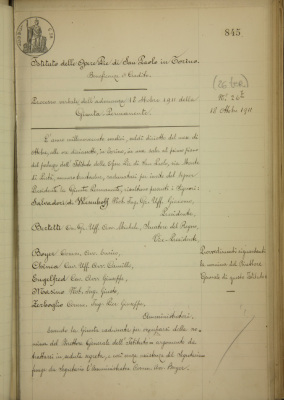 845
Istituto delle Opere Pie di San Paolo in Torino
Beneficenza e Credito
Processo verbale dell'adunanza 18 Ottobre 1911 della
Giunta Permanente
N. 26
18 Ottobre 1911
L'anno millenovecento undici, addì diciotto del mese di
Ottobre, alle ore diciassette, in Torino, in una sala al piano primo
del palazzo dell'Istituto delle Opere Pie di San Paolo, via Monte
di Pietà, numero trentadue, radunatasi per invito del Signor
Presidente la Giunta Permanente, risultano presenti i Signori:
Nob. Ing. Uff.
Presidente
Bertetti Uff. Avv. Michele, Senatore del Regno,
Vice-Presidente
Boyer Avv.
Chiesa Cav. Uff. Avv. Camillo,
Engelfred Cav. Avv. Giuseppe,
Nob. Ing. Guido,
Zerboglio Comm. Ing. Cav. Giuseppe,
Amministratori.
Provvedimenti riguardanti
la nomina del Direttore
Generale di questo Istituto
Essendo la Giunta radunata per occuparsi della no-
mina del Direttore Generale dell'Istituto argomento da
trattarsi in seduta segreta, e senza assistenza del Segretario
funge da Segretario l'Amministratore Comm. Avv. Boyer.